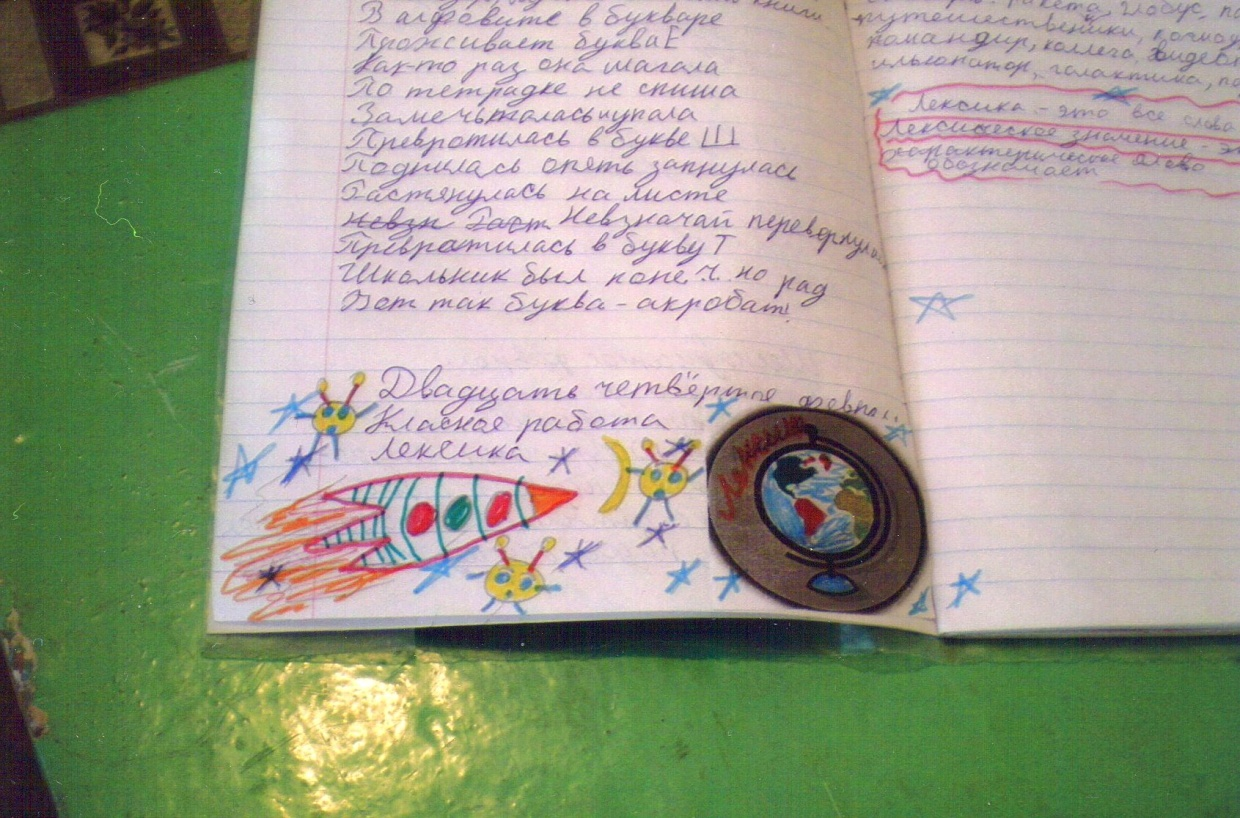 книги
В алфовите в букваре
Проживает буква Е
Как-то раз она шагала
По тетрадке не спиша
Замечьталась и упала
Превротилась в букве Ш
Поднилась опять запнулась
Растянулась на листе
Невзн Раст Невзначай перевернулась
Превротилась в букву Т
Школьник был коне.ч. но рад
Вот так буква - акробат!
Двадцать четвёртое феврал.
Класная работа
Лексика
Лексикит
ракета, глобус,
путешественики,
командир, коллега,
иллюминатор, галактика,
Лексика - это все слова
Лексическое значение -
характерическое слово
обозначает